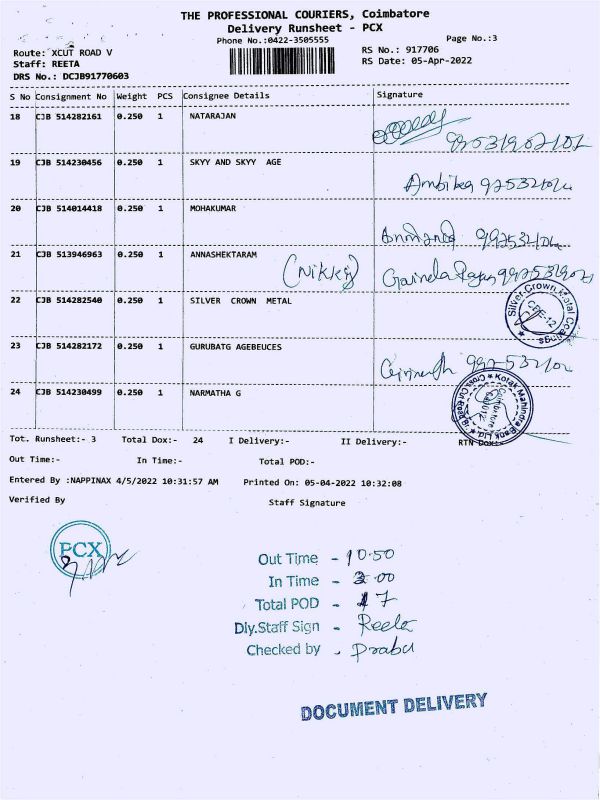 THE PROFESSIONAL COURIERS, Coimbatore
Delivery Runsheet - PCX
Phone No.:0422-3505555 Page No.:3
Route: XCUT ROAD V RS No.: 917706
Staff: REETA RS Date: 05-Apr-2022
DRS No.: DCJB91770603
S No Consignment No Weight PCS Consignee Details Signature
18 CJB 514282161 0.250 1 NATARAJAN
19 CJB 514230456 0.250 1 SKYY AND SKYY AGE
Ambika
20 CJB 514014418 0.250 1 MOHAKUMAR
21 CJB 513946963 0.250 1 ANNASHEKTARAM
22 CJB 514282540 0.250 1 SILVER CROWN METAL
Silver Crown Metal Coatings
CBE-12
23 CJB 514282172 0.250 1 GURUBATG AGEBEUCES
24 CJB 514230499 0.250 1 NARMATHA G
Kotak Mahindra Bank Ltd.
Tot. Runsheet:- 3 Total Dox:- 24 I Delivery:- II Delivery:- RTN Dox:-
Out Time:- In Time:- Total POD:-
Entered By :NAPPINAX 4/5/2022 10:31:57 AM Printed On: 05-04-2022 10:32:08
Verified By Staff Signature
PCX
Out Time - 10.50
In Time - 3.00
Total POD - 17
Dly.Staff Sign - Reeta
Checked by - Prabu
DOCUMENT DELIVERY